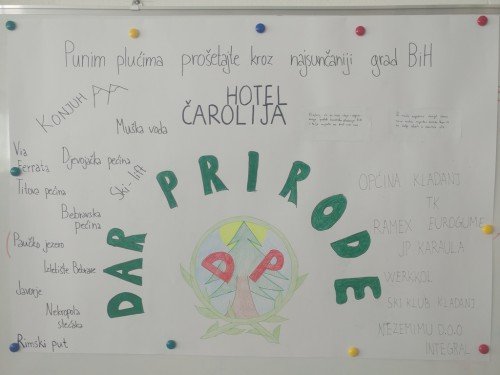 Punim plućima prošetajte kroz najsunčaniji grad BiH
HOTEL
ČAROLIJA
KONJUH
Muška voda
Via
Ferrata
Djevojačka pećina
Ski-lift
Titova pećina
Bebravska
pećina
Paučko jezero
Izletište Bebrave
Javorje
Nekropola
stećaka
Rimski put
DAR PRIRODE
DP
OPĆINA KLADANJ
TK
RAMEX EUROGUME
JP KARAULA
WERKKOL
SKI KLUB KLADANJ
NEZEMIMU D.O.O
INTEGRAL